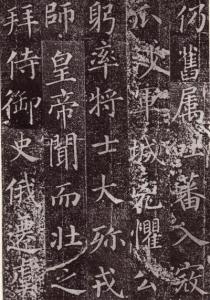 仍舊属吐蕃入寇
瓜沙軍城兇懼公
躬率將士大殄戎
師皇帝聞而壮之
拜侍御史俄遷